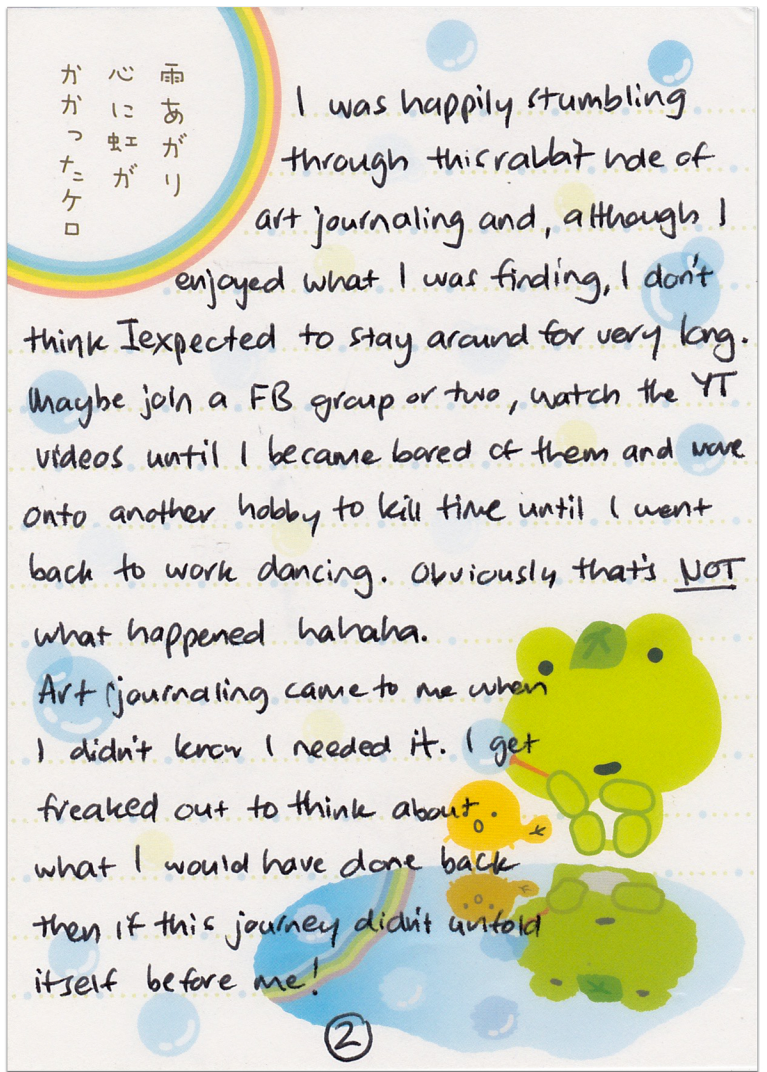 雨あがり
心に虹が
かかったケロ
I was happily stumbling
through this rabbit hole of
art journaling and, although I
enjoyed what I was finding, I don't
think I expected to stay around for very long.
Maybe join a FB group or two, watch the YT
videos until I became bored of them and move
onto another hobby to kill time until I went
back to work dancing. Obviously that's NOT
what happened hahaha.
Art journaling came to me when
I didn't know I needed it. I get
freaked out to think about
what I would have done back
then if this journey didn't unfold
itself before me!
2